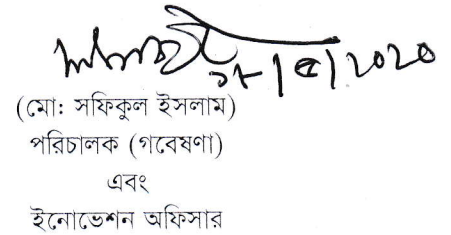 ১৮/৫/২০২০
(মো: সফিকুল ইসলাম)
পরিচালক (গবেষণা)
এবং
ইনোভেশন অফিসার